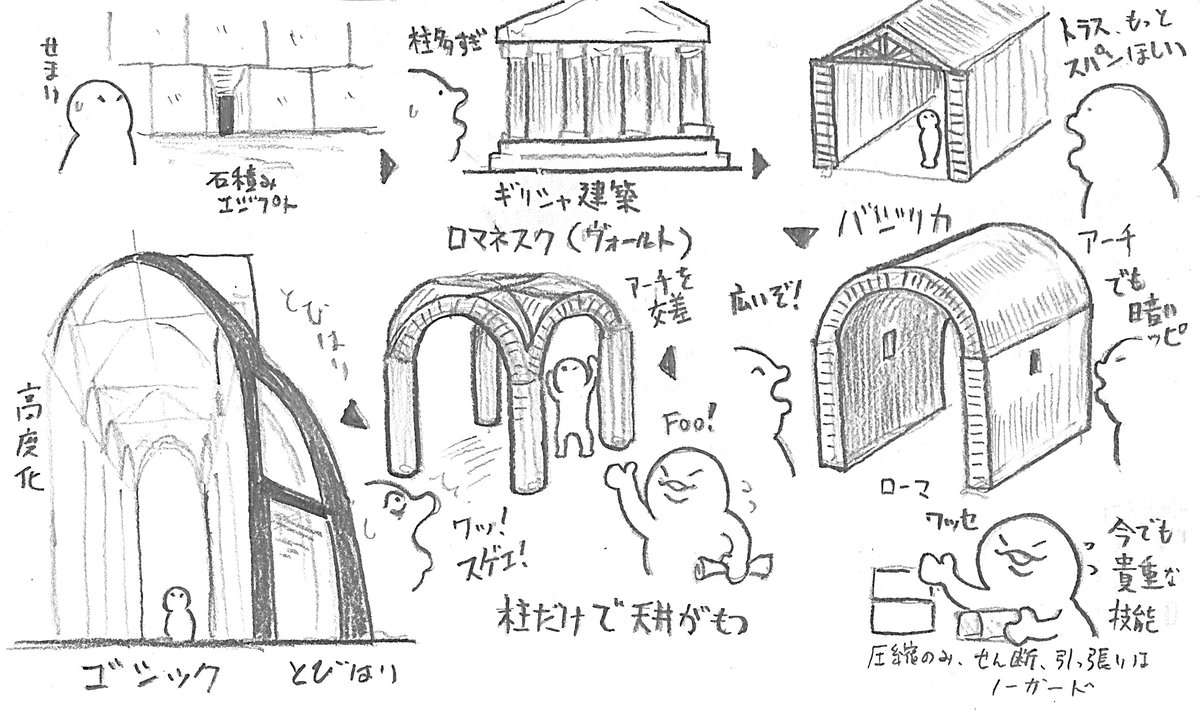 せまい
石積み
エジプト
柱多すぎ
ギリシャ建築
トラス、もっと
スパンほしい
バジリカ
アーチ
でも
暗い
ッピ
広いぞ!
ローマ
ワッセ
今でも
貴重な
技能
圧縮のみ、せん断、引っ張りは
ノーガード
ロマネスク(ヴォールト)
アーチを
交差
Foo!
柱だけで天井がもつ
ワッ!
スゲエ!
とびはり
高度化
ゴシック
とびはり